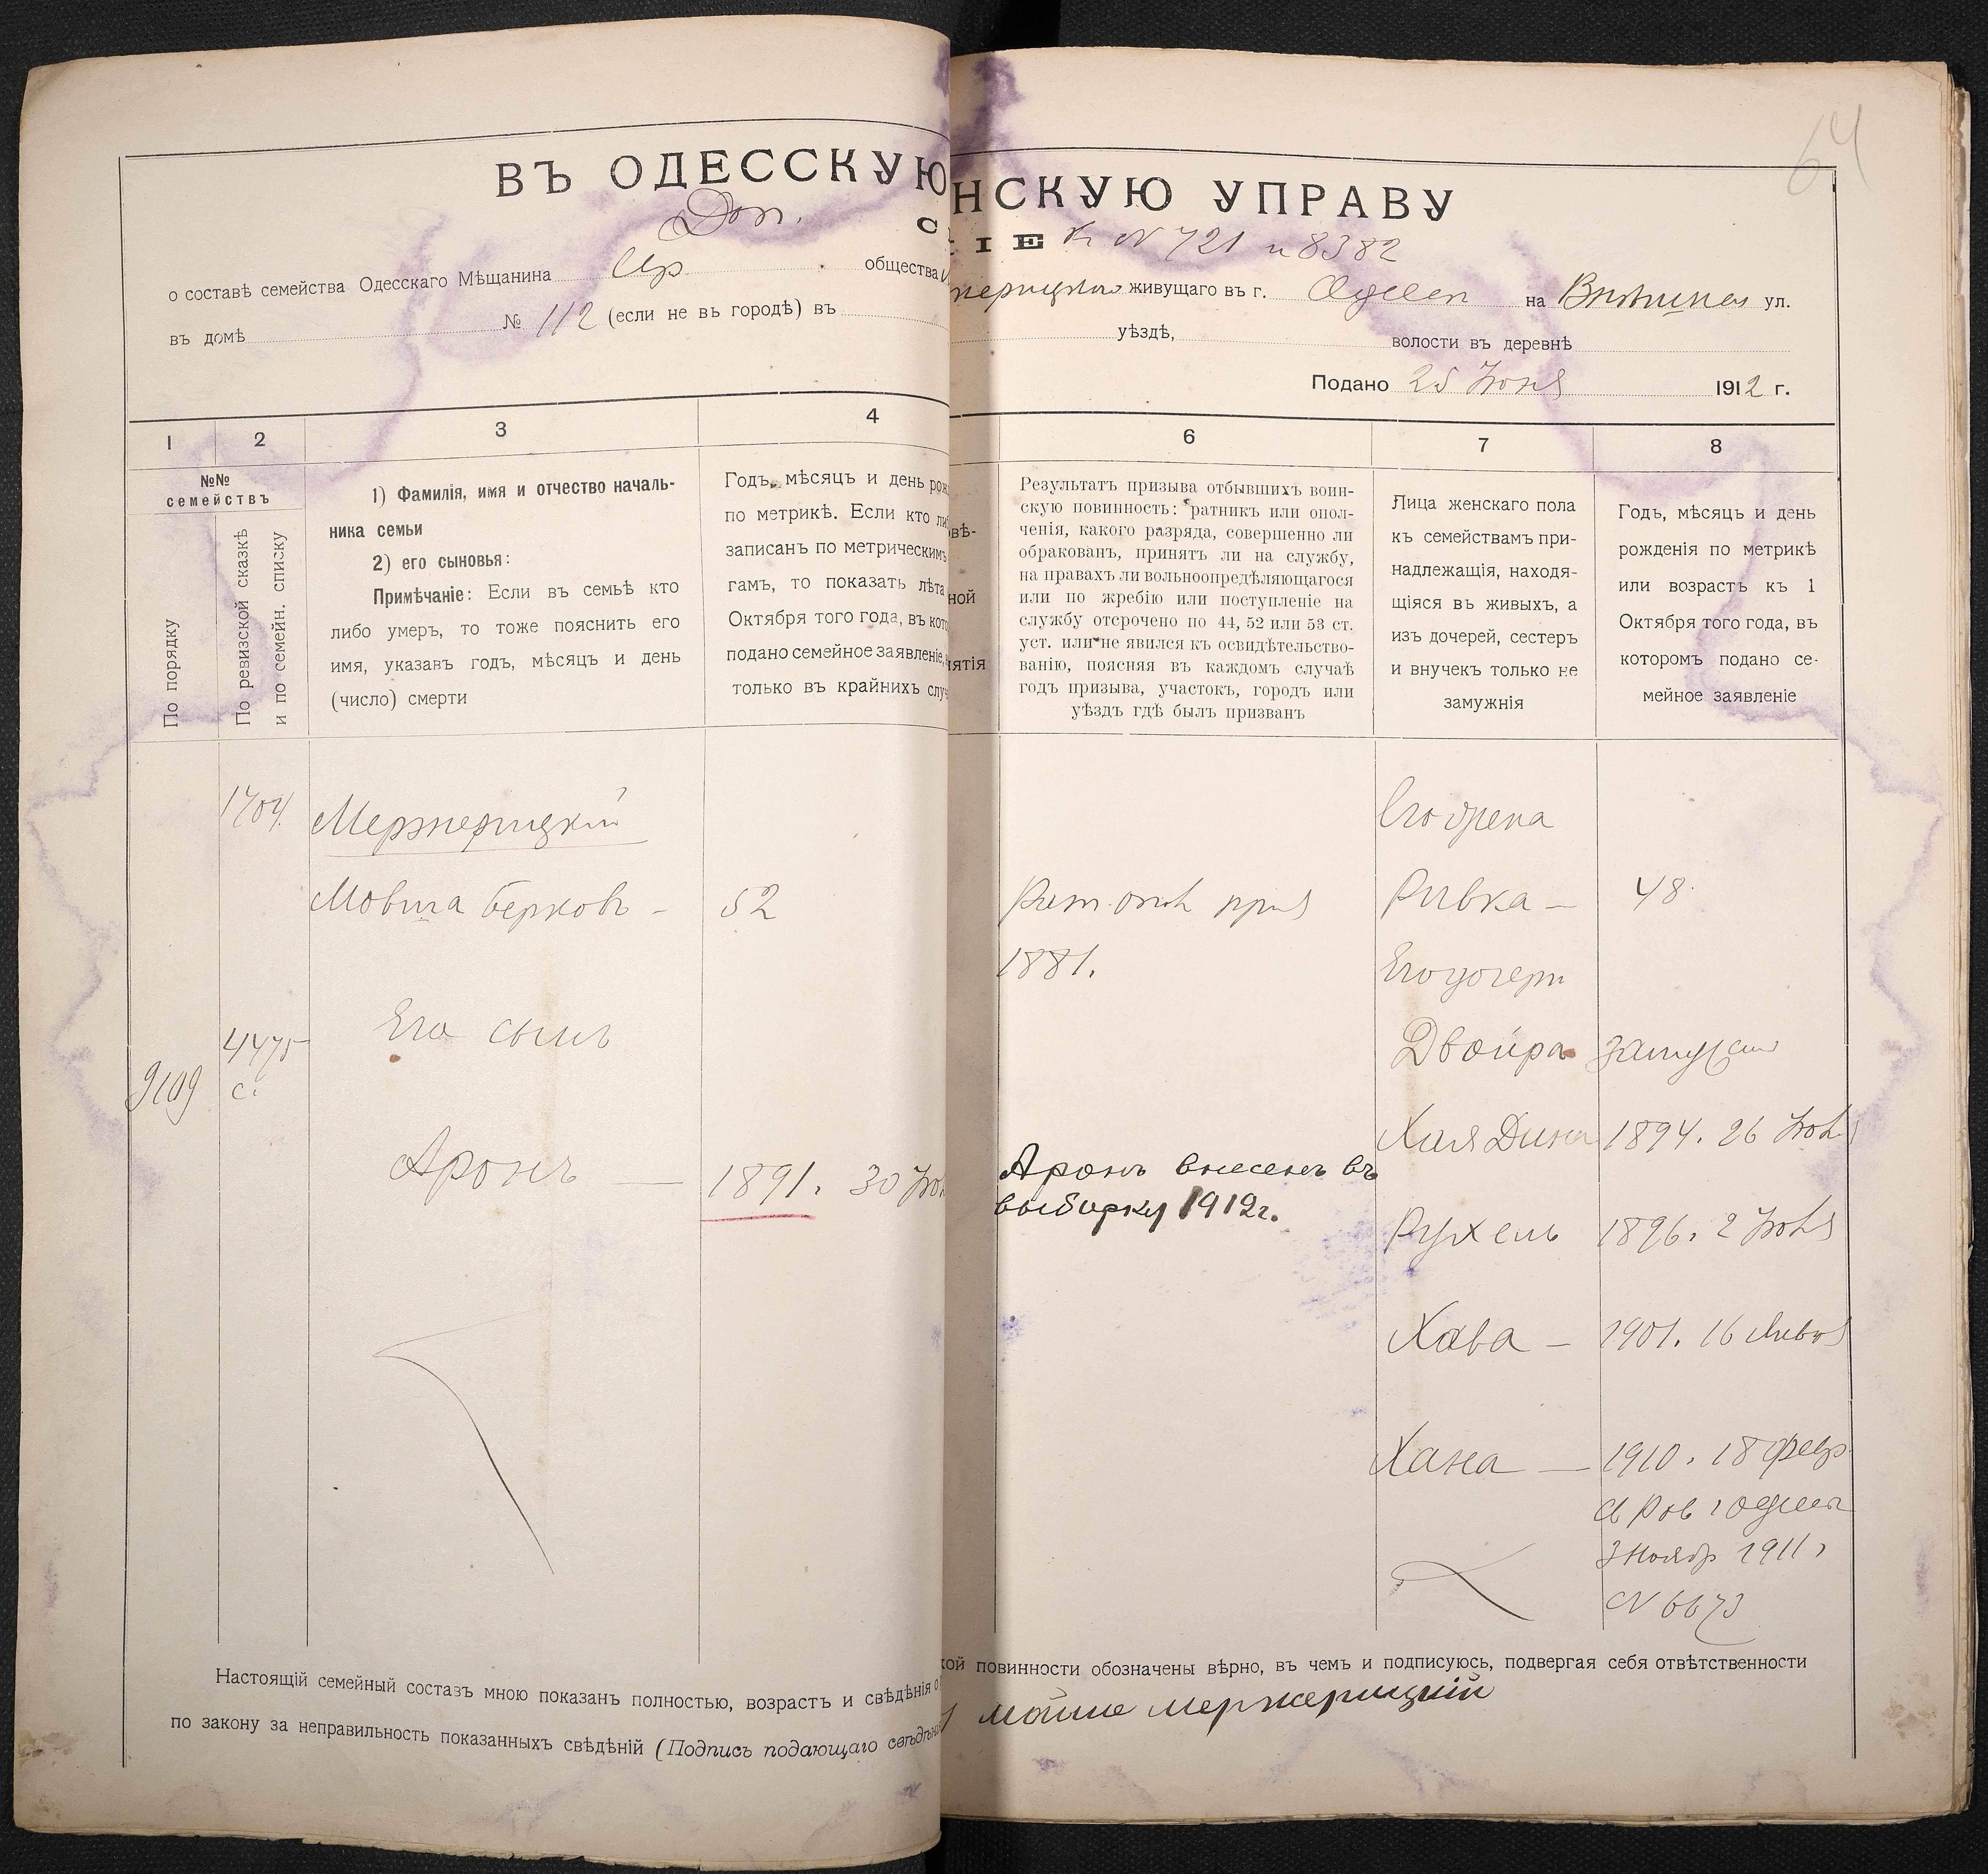 64
ВЪ ОДЕССКУЮ НСКУЮ УПРАВУ
Доп. С ІЕ к N 721 и 8382
о составѣ семейства Одесскаго Мѣщанина Евр общества живущаго въ г. Одессѣ на ул.
въ домѣ № 112 (если не въ городѣ) въ уѣздѣ, волости въ деревнѣ
Подано 25 Іюня 1912 г.
1 2 3 4 6 7 8
№№
семействъ
По порядку
По ревизской сказкѣ
и по семейн. списку
1) Фамилія, имя и отчество началь-
ника семьи
2) его сыновья:
Примѣчаніе: Если въ семьѣ кто
либо умеръ, то тоже пояснить его
имя, указавъ годъ, мѣсяцъ и день
(число) смерти
Годъ, мѣсяцъ и день рож
по метрикѣ. Если кто ли
записанъ по метрическимъ
гамъ, то показать лѣта
Октября того года, въ кото
подано семейное заявленіе,
только въ крайнихъ случ
вѣ-
ной
ятія
Результатъ призыва отбывшихъ воин-
скую повинность: ратникъ или опол-
ченія, какого разряда, совершенно ли
обракованъ, принятъ ли на службу,
на правахъ ли вольноопредѣляющагося
или по жребію или поступленіе на
службу отсрочено по 44, 52 или 53 ст.
уст. или не явился къ освидѣтельство-
ванію, поясняя въ каждомъ случаѣ
годъ призыва, участокъ, городъ или
уѣздъ гдѣ былъ призванъ
Лица женскаго пола
къ семействамъ при-
надлежащія, находя-
щіяся въ живыхъ, а
изъ дочерей, сестеръ
и внучекъ только не
замужнія
Годъ, мѣсяцъ и день
рожденія по метрикѣ
или возрастъ къ 1
Октября того года, въ
которомъ подано се-
мейное заявленіе
1704. Мержерицкій
Его жена
Мовша Берковъ - 52
Рат. опол. приз
Ривка — 48
1881.
Его дочери
4475 Его сынъ
Двойра замужем
9109 с.
Хая Дина 1894. 26 Іюня
Аронъ — 1891. 30
Аронъ внесенъ въ
выборку 1912г.
Рухель 1896. 2 Іюня
Хава — 1901. 16 Января
Хана — 1910. 18 февр.
3 Ноябр 1911
N 6673
Настоящій семейный составъ мною показанъ полностью, возрастъ и свѣдѣнія о кой повинности обозначены вѣрно, въ чемъ и подписуюсь, подвергая себя отвѣтственности
по закону за неправильность показанныхъ свѣдѣній (Подпись подающаго свѣдѣнія мойше мержерицкий